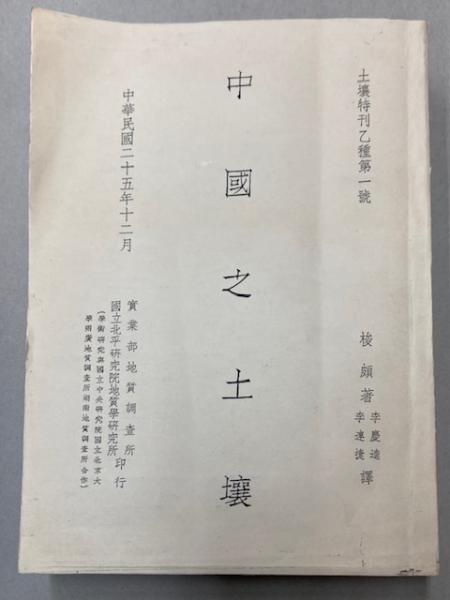 土壤特刊乙種第一號
梭頗著
李慶逵
李連捷
譯
中國之土壤
中華民國二十五年十二月
實業部地質調查所
國立北平研究院地質學研究所
印行
(學術研究與國立中央研究院國立北京大
學兩廣地質調查所湖南地質調查所合作)